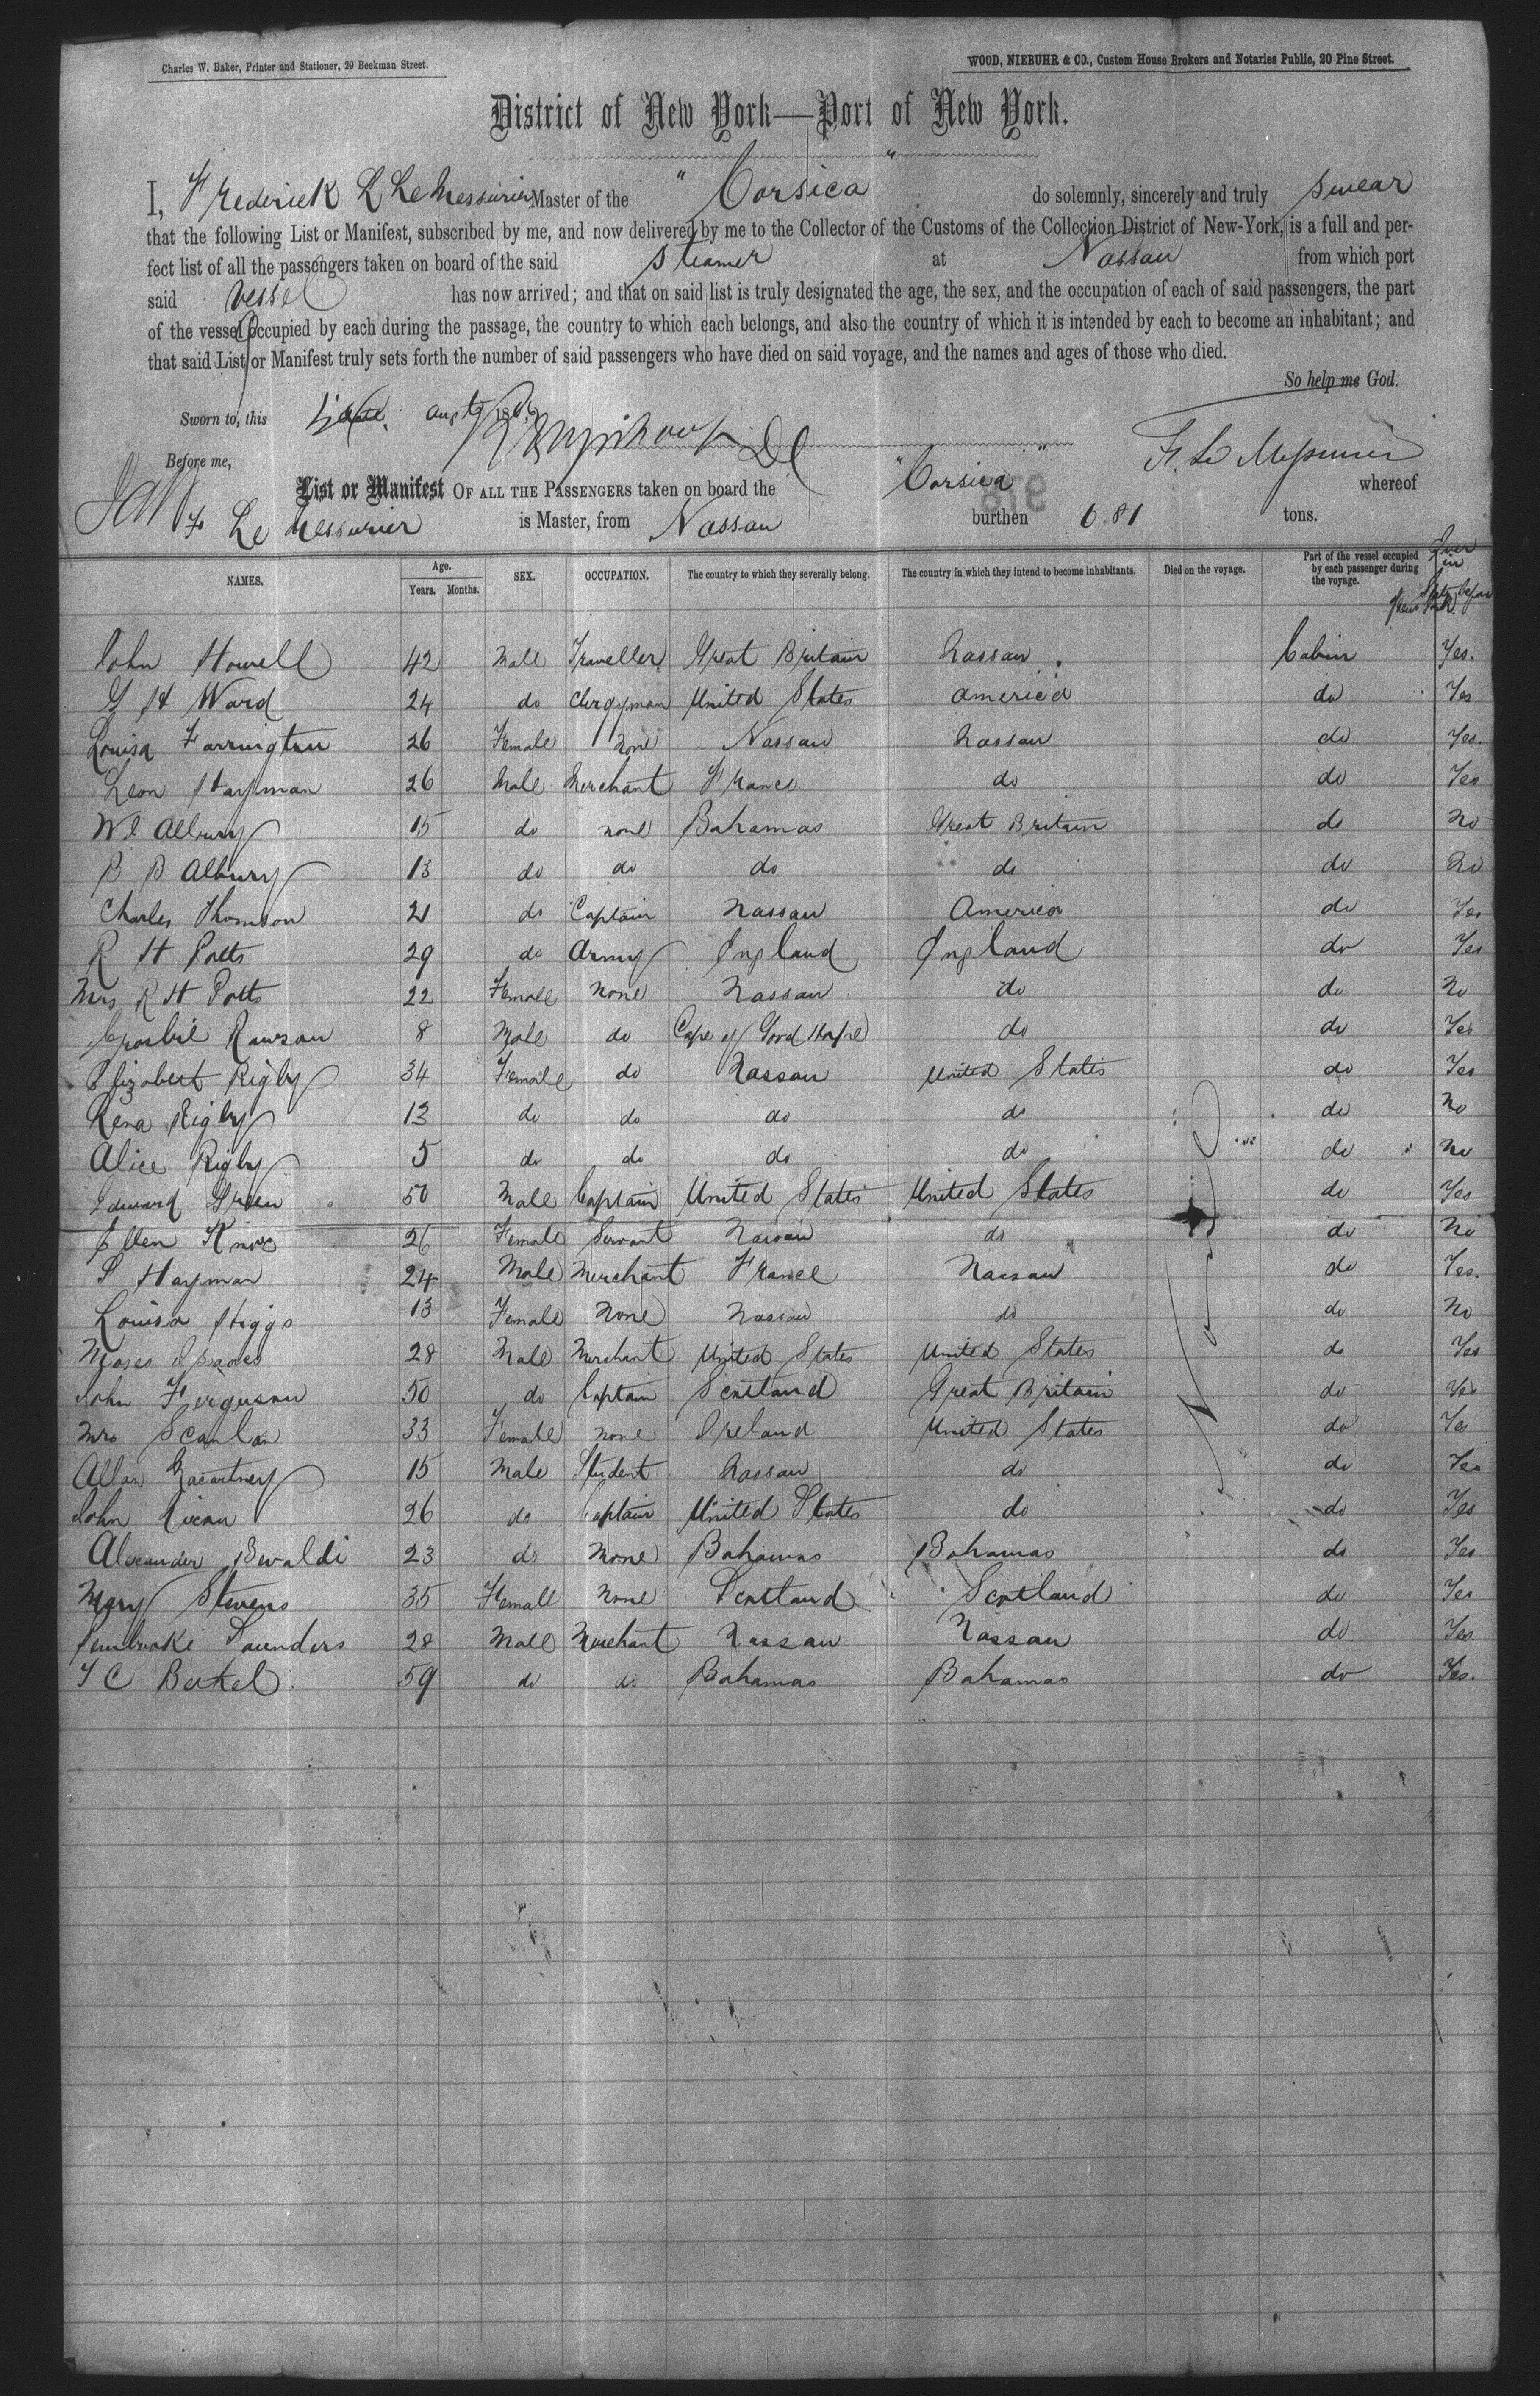 Charles W. Baker, Printer and Stationer, 29 Beekman Street.
WOOD, NIEBUHR & CO., Custom House Brokers and Notaries Public, 20 Pine Street.
District of New York—Port of New York.
I, Frederick L Le Messurier Master of the "Corsica" do solemnly, sincerely and truly swear
that the following List or Manifest, subscribed by me, and now delivered by me to the Collector of the Customs of the Collection District of New-York, is a full and per-
fect list of all the passengers taken on board of the said steamer at Nassau from which port
said vessel has now arrived; and that on said list is truly designated the age, the sex, and the occupation of each of said passengers, the part
of the vessel occupied by each during the passage, the country to which each belongs, and also the country of which it is intended by each to become an inhabitant; and
that said List or Manifest truly sets forth the number of said passengers who have died on said voyage, and the names and ages of those who died.
So help me God.
Sworn to, this Aug 186
Before me,
F. Le Messurier
List or Manifest OF ALL THE PASSENGERS taken on board the "Corsica" whereof
F Le Messurier is Master, from Nassau burthen 681 tons.
NAMES. Age. Years. Months. SEX. OCCUPATION. The country to which they severally belong. The country in which they intend to become inhabitants. Died on the voyage. Part of the vessel occupied by each passenger during the voyage. Ever in before
John Howell 42 Male Traveller Great Britain Nassau Cabin Yes.
G H Ward 24 do Clergyman United States America do Yes
Louisa Farrington 26 Female none Nassau Nassau do Yes.
Leon Hayman 26 Male Merchant France do do Yes
W Albury 15 do none Bahamas Great Britain do No
B B Albury 13 do do do do do No
Charles Thomson 21 do Captain Nassau America do Yes
R H Potts 29 do Army England England do Yes
Mrs R H Potts 22 Female none Nassau do do No
Crosbie Rawson 8 Male do Cape of Good Hope do do Yes
Elizabeth Rigby 34 Female do Nassau United States do Yes
Rena Rigby 13 do do do do do No
Alice Rigby 5 do do do do do No
Edward Green 50 Male Captain United States United States do Yes
Ellen Knox 26 Female Servant Nassau do do No
S Hayman 24 Male Merchant France Nassau do Yes.
Louisa Higgs 13 Female none Nassau do do No
Moses 28 Male Merchant United States United States do Yes
John Ferguson 50 do Captain Scotland Great Britain do Yes
Mrs Scanlan 33 Female none Ireland United States do Yes
Allan Macartney 15 Male Student Nassau do do Yes
John 26 do Captain United States do do Yes
Alexander 23 do None Bahamas Bahamas do Yes
Mary Stevens 35 Female none Scotland Scotland do Yes
Pembroke Saunders 28 Male Merchant Nassau Nassau do Yes
T C 59 do do Bahamas Bahamas do Yes.